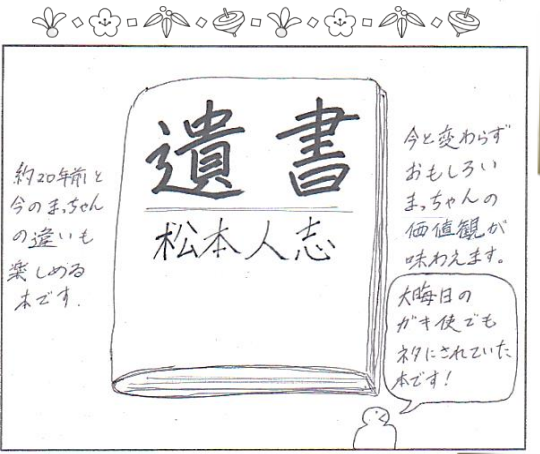 遺書
松本人志
約20年前と
今のまっちゃん
の違いも
楽しめる
本です.
今と変わらず
おもしろい
まっちゃんの
価値観が
味わえます。
大晦日の
ガキ使でも
ネタにされていた
本です!